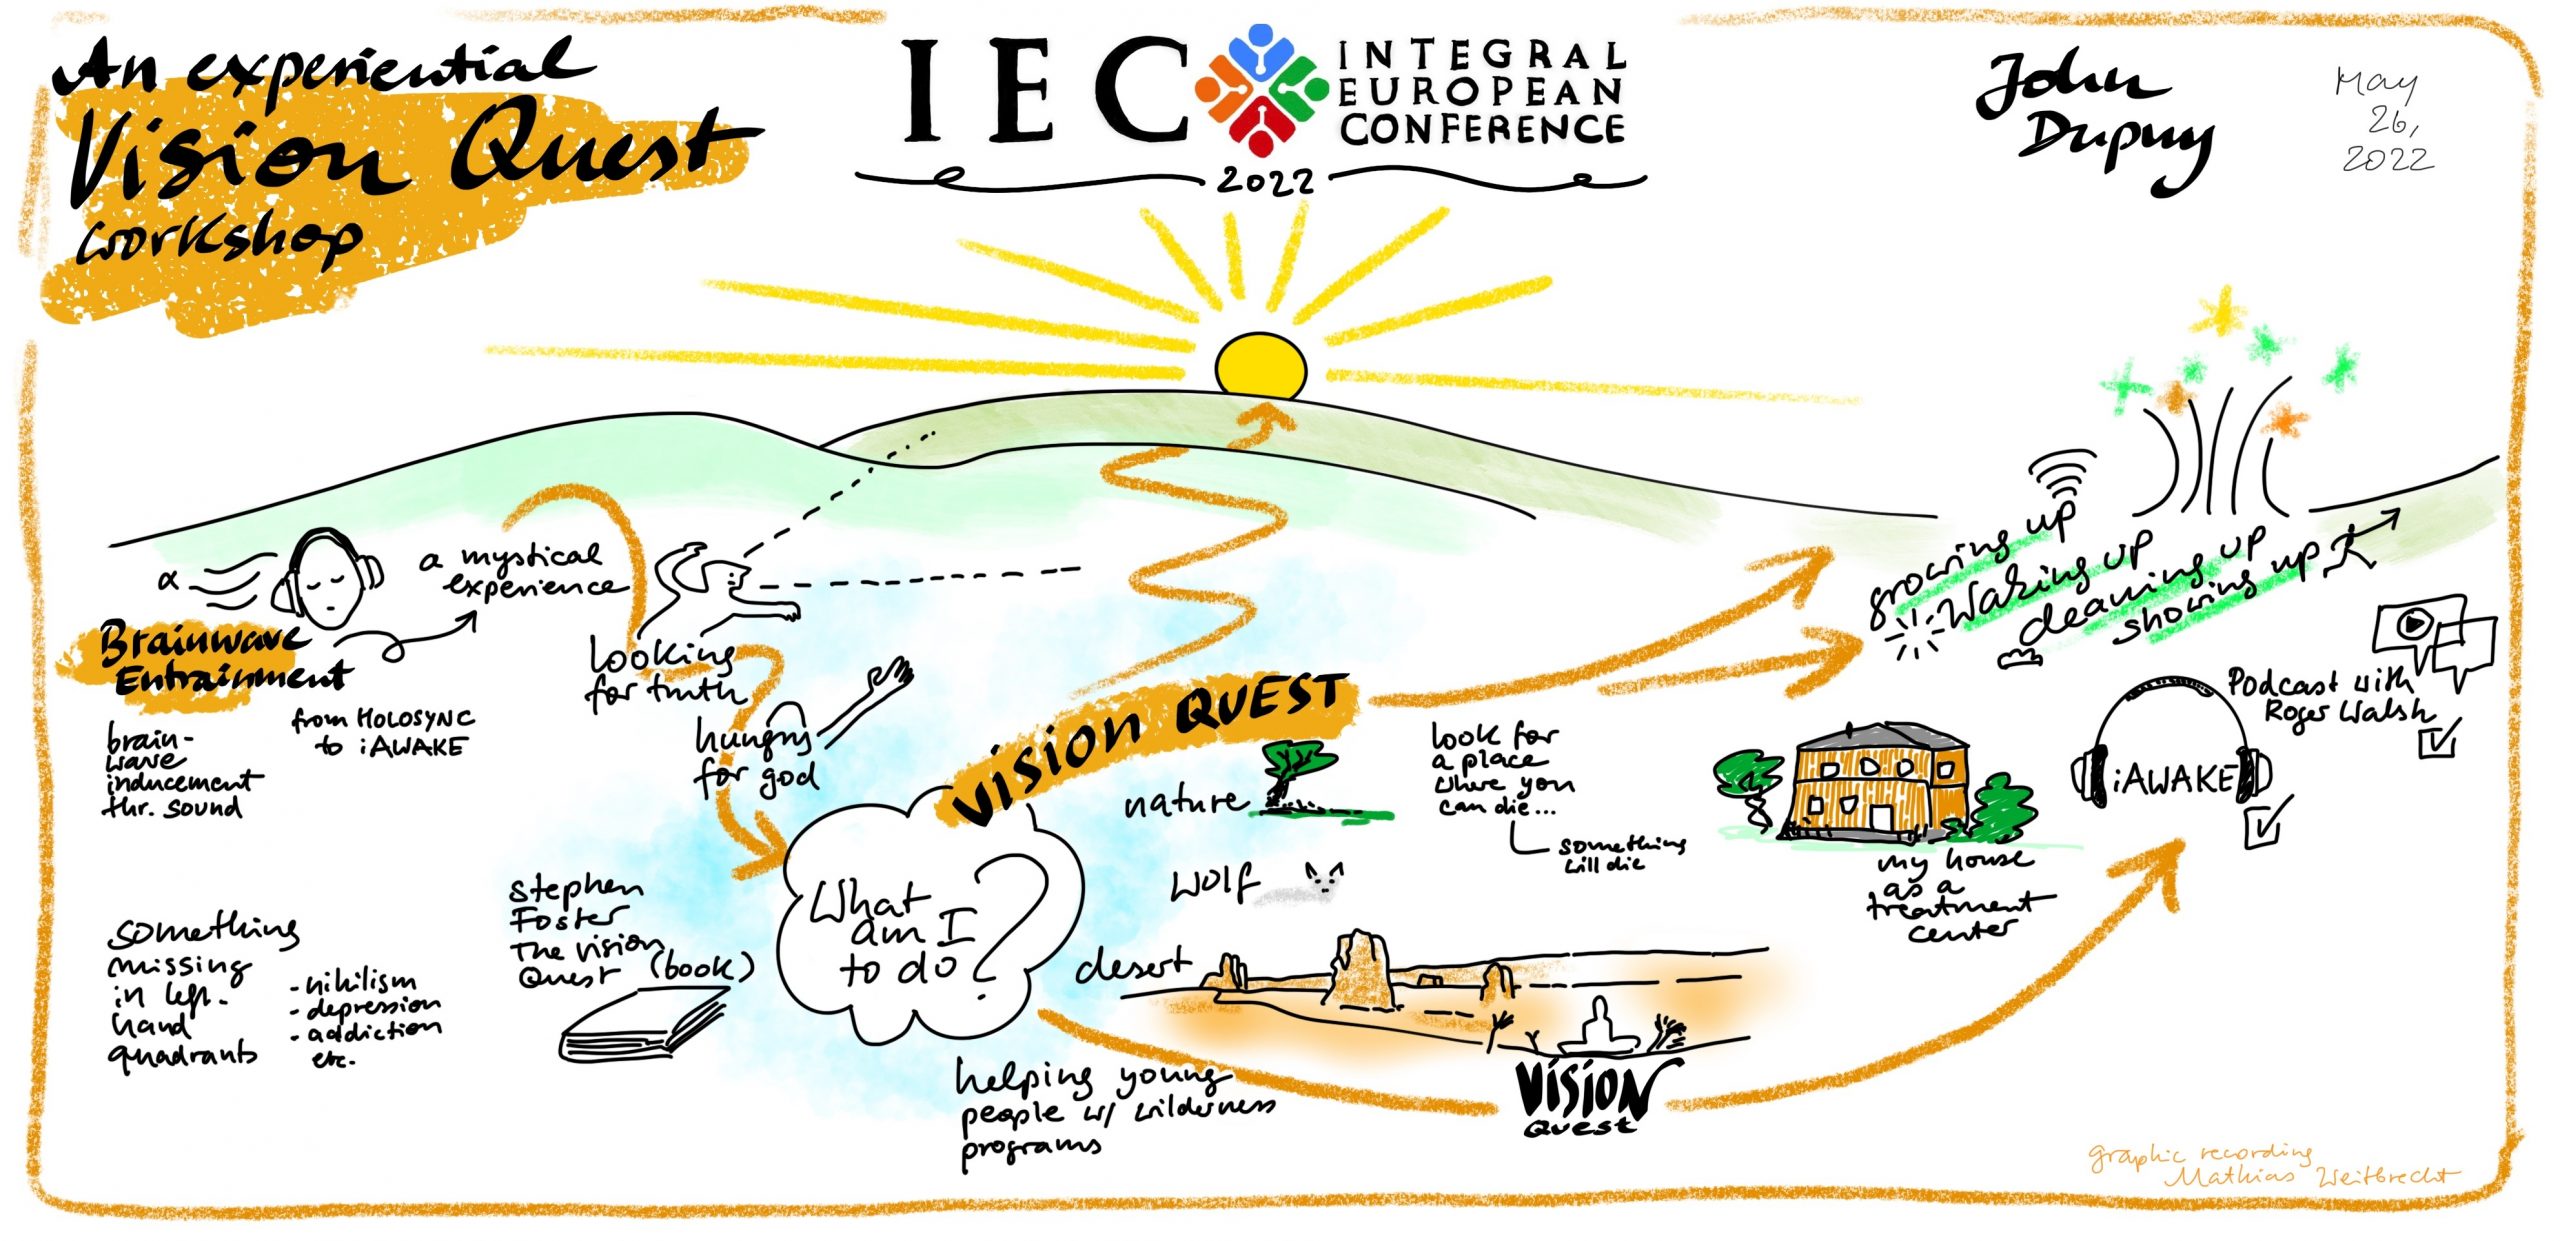 An experiential
Vision Quest
workshop
IEC
INTEGRAL
EUROPEAN
CONFERENCE
2022
John
Dupuy
May
26,
2022
α
Brainwave
Entrainment
brain-
wave
inducement
thr. sound
from HOLOSYNC
to iAWAKE
a mystical
experience
looking
for truth
hungry
for god
something
missing
in left-
hand
quadrants
- nihilism
- depression
- addiction
etc.
Stephen
Foster
The vision
Quest (book)
What
am I
to do?
VISION QUEST
nature
wolf
desert
helping young
people w/ wilderness
programs
look for
a place
where you
can die...
something
will die
VISION
Quest
my house
as a
treatment
center
growing up
waking up
cleaning up
showing up
iAWAKE
Podcast with
Roger Walsh
graphic recording
Mathias Weitbrecht